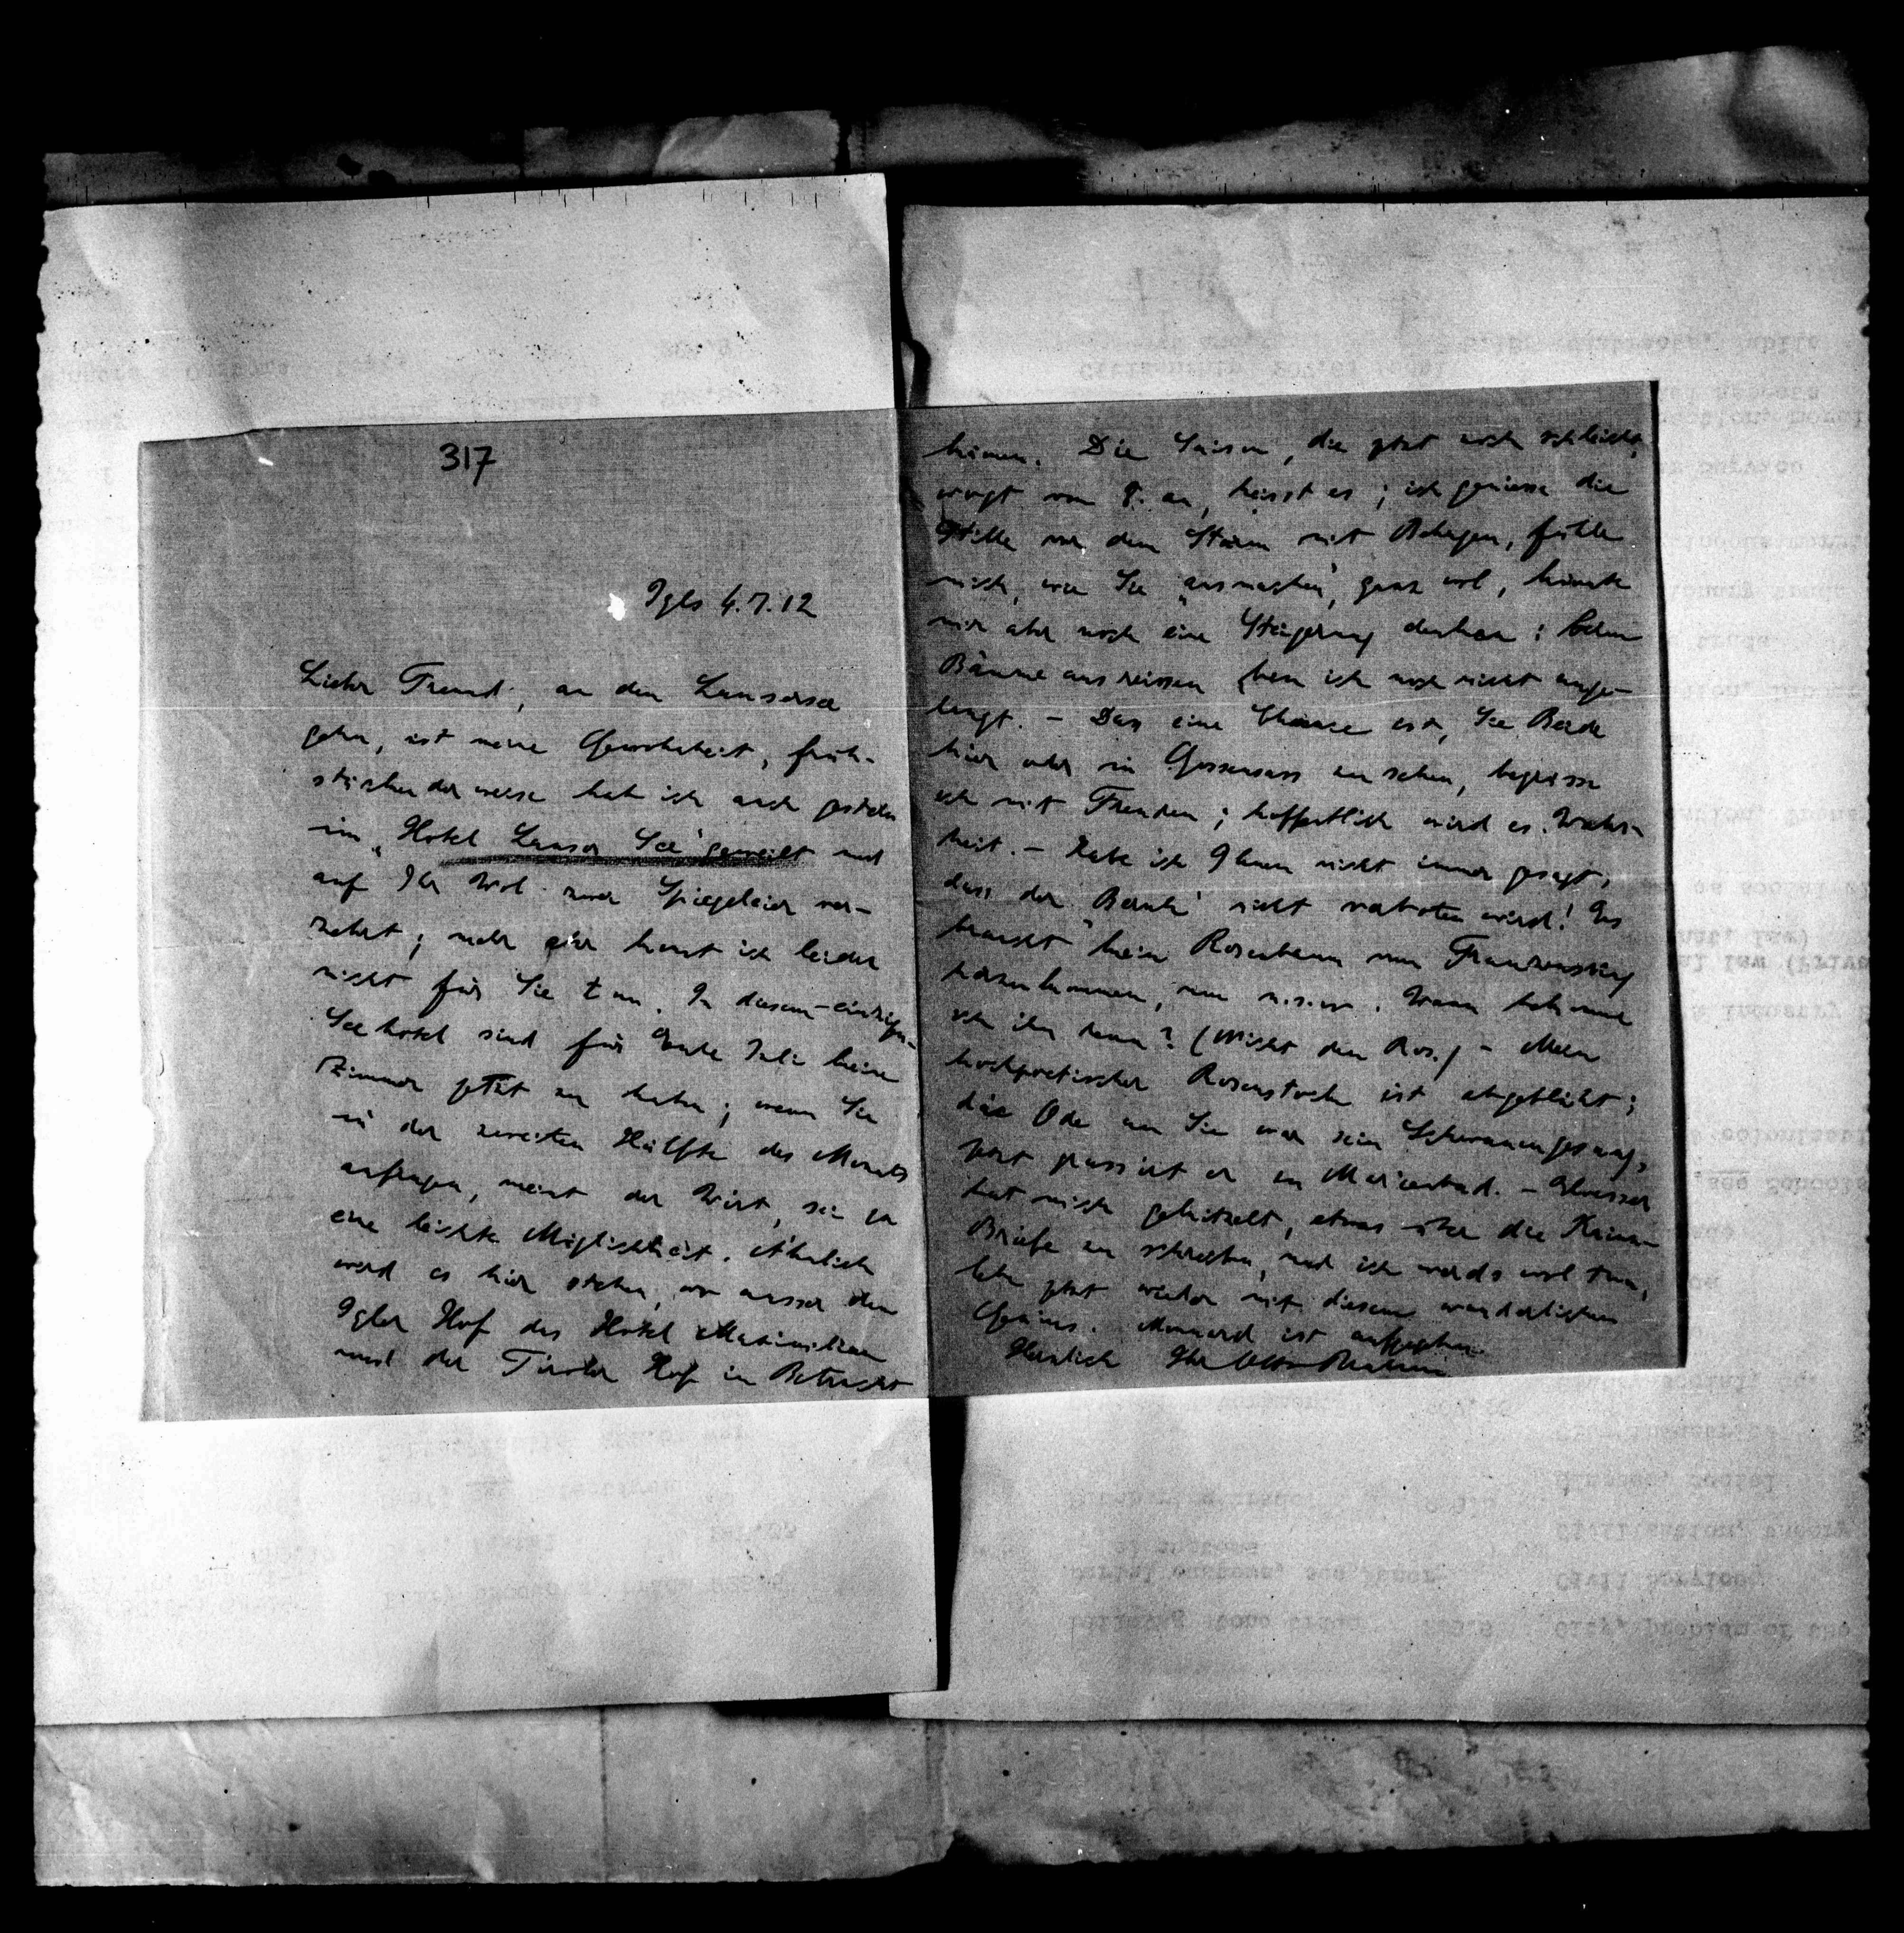 317
Igls 4.7.12
Lieber Freund, an den Lansersee
gehn, ist meine Gewohnheit, früh-
stückender weise hab ich auch gestern
im „Hotel Lanser See" geweilt und
auf Ihr Wol zwei Spiegeleier ver-
zehrt; mehr aber konnt ich leider
nicht für Sie tun. In diesem – einzigen –
Seehotel sind für Ende Juli keine
Zimmer jetzt zu haben; wenn Sie
in der zweiten Hälfte des Monats
anfragen, meint der Wirt, sei ja
eine leichte Möglichkeit. Ähnlich
wird es hier stehn, wo ausser dem
Igler Hof das Hotel Maximilian
und der Tiroler Hof in Betracht
kämen. Die Saison, die jetzt noch schleicht,
wogt vom 8. an, heisst es; ich geniesse die
Stille vor dem Sturm mit Behagen, fühle
mich, wie Sie „ausmachten", ganz wol, könnte
mir aber noch eine Steigerung denken: beim
Bäume ausreissen bin ich noch nicht ange-
langt. – Dass eine Chance ist, Sie Beide
hier oder in Gossensass zu sehen, begrüsse
ich mit Freuden; hoffentlich wird es Wahr-
heit. – Habe ich Ihnen nicht immer gesagt,
dass der „Bernhi" nicht verboten wird! Es
braucht kein Rosenbaum vom Franzensring
herzukommen, um u.s.w. Wann bekomme
ich ihn denn? (Nicht den Ros.) – Mein
hochpoetischer Rosenstock ist abgeblüht;
die Ode an Sie war sein Schwanengesang,
jetzt grassirt er in Marienbad. – Eloesser
hat mich gekitzelt, etwas über die Kainz-
Briefe zu schreiben, und ich werds wol tun,
lebe jetzt weiter mit diesem wunderlichen
Genius. Monard ist aufgegeben.
Herzlich Ihr Otto Brahm